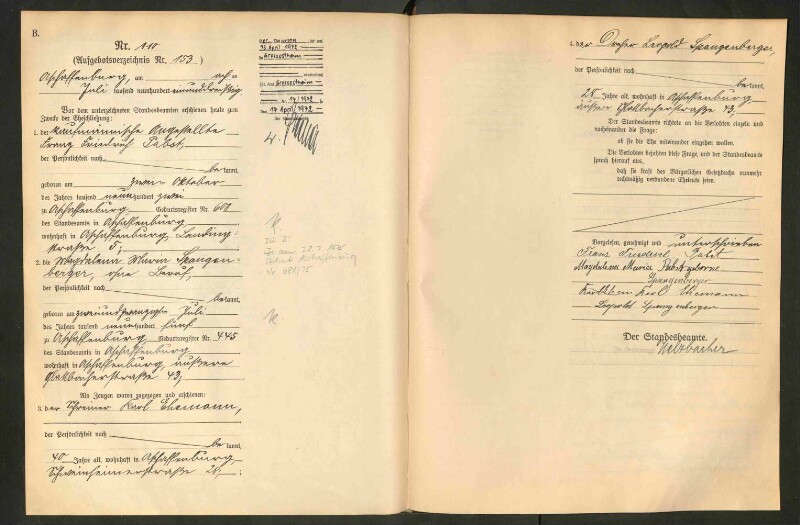 B.
Nr. 110
(Aufgebotsverzeichnis Nr. 153)
Aschaffenburg, am
Juli tausend neunhundert neunundzwanzig
Vor dem unterzeichneten Standesbeamten erschienen heute zum
Zwecke der Eheschließung:
1. der kaufmännische Angestellte
Franz Friedrich Pabst,
der Persönlichkeit nach
be kannt,
geboren am zweiten Oktober
des Jahres tausend neunhundert zwei
zu Aschaffenburg Geburtsregister Nr. 601
des Standesamts in Aschaffenburg,
wohnhaft in Aschaffenburg, Landing-
straße 5;
2. die Magdalena Maria Spangen-
berger, ohne Beruf,
der Persönlichkeit nach
be kannt,
geboren am zweiundzwanzigsten Juli
des Jahres tausend neunhundert fünf
zu Aschaffenburg Geburtsregister Nr. 445
des Standesamts in Aschaffenburg
wohnhaft in Aschaffenburg, äußere
Glattbacherstraße 43,
Als Zeugen waren zugezogen und erschienen:
3. der Schreiner Karl Ehemann,
der Persönlichkeit nach
be kannt,
40 Jahre alt, wohnhaft in Aschaffenburg,
Schweinheimerstraße 28;
April 1972
Grossostheim
Grossostheim
14/1972
14. April 1972
Zu 2:
Nr. 681/75
4. der Dreher Leopold Spangenberger,
der Persönlichkeit nach
be kannt,
28 Jahre alt, wohnhaft in Aschaffenburg
äußere Glattbacherstraße 43;
Der Standesbeamte richtete an die Verlobten einzeln und
nacheinander die Frage:
ob sie die Ehe miteinander eingehen wollen.
Die Verlobten bejahten diese Frage, und der Standesbeamte
sprach hierauf aus,
daß sie kraft des Bürgerlichen Gesetzbuchs nunmehr
rechtmäßig verbundene Eheleute seien.
Vorgelesen, genehmigt und unterschrieben
Franz Friedrich Pabst
Magdalena Maria Pabst geborne
Spangenberger
Karl Ehemann
Leopold Spangenberger
Der Standesbeamte.